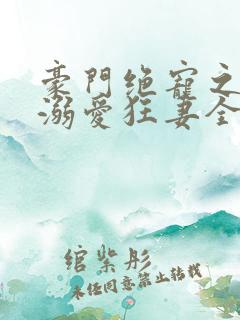 豪門绝寵之
溺愛狂妻全
绾紫彤
未经同意禁止转载